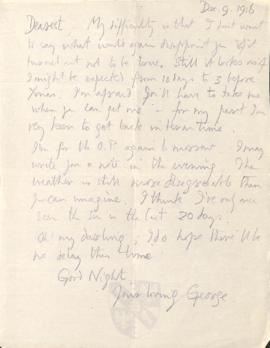 Dec. 9. 1916
Dearest My difficulty is that I don't want
to say what would again disappoint you if it
turned out not to be true. Still it looks as if
I might be expected from 10 days to 3 before
Xmas. I'm afraid you'll have to take me
when you can get me - for my part I'm
very keen to get back in time.
I'm for the O.P. again to-morrow I may
write you a note in the evening The
weather is still more disagreeable than
you can imagine. I think I've only once
seen the sun in the last 20 days.
Oh! my darling, I do hope there'll be
no delay this time
Good Night
Your loving George